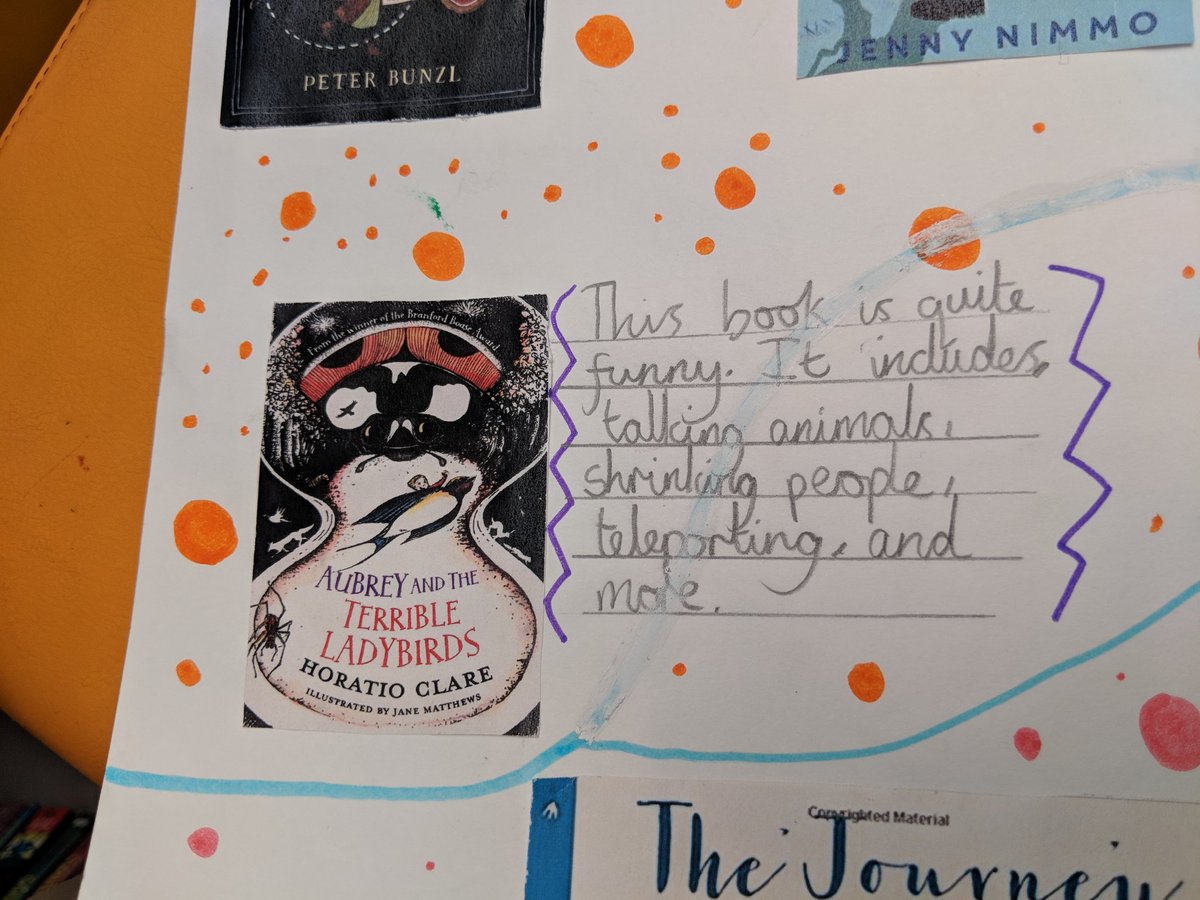 PETER BUNZL
JENNY NIMMO
From the winner of the Branford Boase Award
AUBREY AND THE
TERRIBLE
LADYBIRDS
HORATIO CLARE
ILLUSTRATED BY JANE MATTHEWS
This book is quite
funny. It includes,
talking animals,
shrinking people,
teleporting, and
more.
Copyrighted Material
The Journey